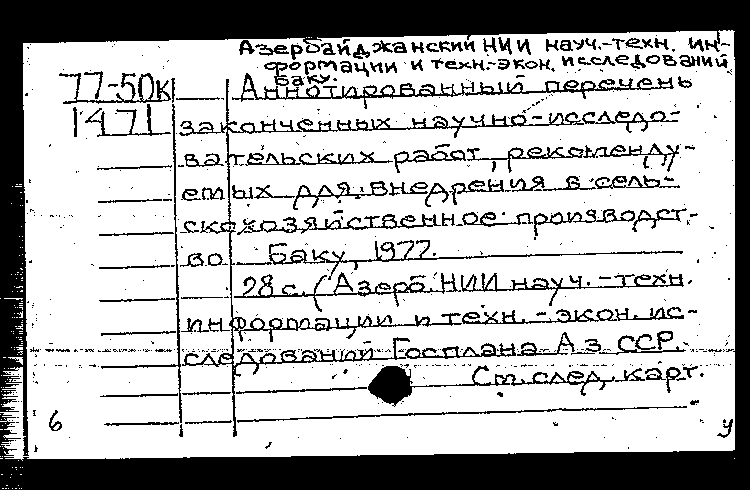 Азербайджанский НИИ науч.-техн. ин-
формации и техн.-экон. исследований
Баку.
77-50к Аннотированный перечень
1471 законченных научно-исследо-
вательских работ, рекоменду-
емых для внедрения в сель-
скохозяйственное производст-
во Баку, 1977.
28 с. (Азерб. НИИ науч.-техн.
информации и техн.-экон. ис-
следований Госплана Аз ССР.
См. след. карт.
6 у